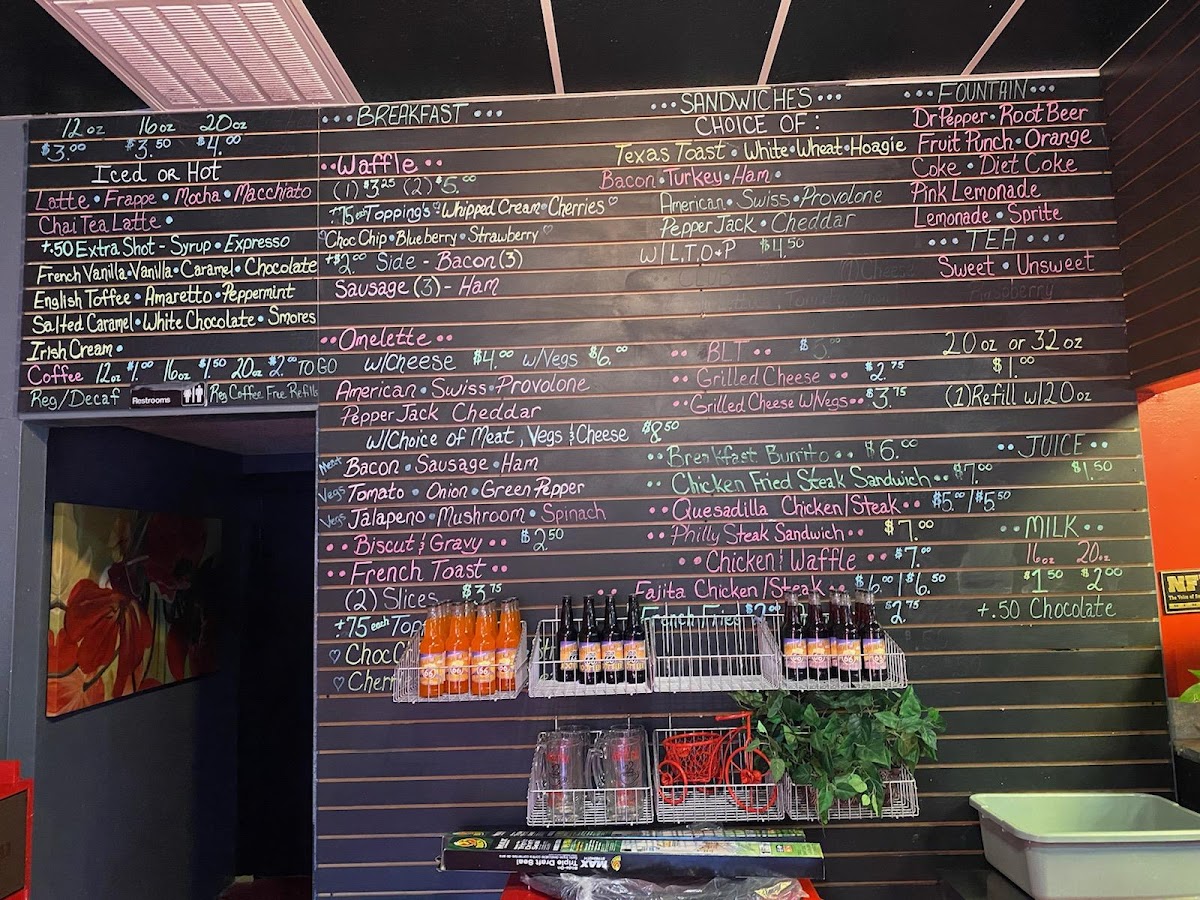 12 oz 16 oz 20 oz
$3.00 $3.50 $4.00
Iced or Hot
Latte • Frappe • Mocha • Macchiato
Chai Tea Latte •
+.50 Extra Shot - Syrup • Expresso
French Vanilla • Vanilla • Caramel • Chocolate
English Toffee • Amaretto • Peppermint
Salted Caramel • White Chocolate • Smores
Irish Cream •
Coffee 12oz $1.00 16oz $1.50 20oz $2.00 TO GO
Reg/Decaf
Restrooms
Reg Coffee Free Refills
••• BREAKFAST •••
•• Waffle ••
(1) $3.25 (2) $5.00
+75 each Topping's Whipped Cream • Cherries ♡
Choc Chip • Blueberry • Strawberry ♡
+$2.00 Side - Bacon (3)
Sausage (3) - Ham
•• Omelette ••
w/Cheese $4.00 w/Vegs $6.00
American • Swiss • Provolone
Pepper Jack Cheddar
w/Choice of Meat, Vegs & Cheese $8.50
Meat Bacon • Sausage • Ham
Vegs Tomato • Onion • Green Pepper
Vegs Jalapeno • Mushroom • Spinach
•• Biscut & Gravy •• $2.50
•• French Toast ••
(2) Slices $3.75
+75 each Top
♡ Choc C
♡ Cherr
••• SANDWICHES •••
CHOICE OF:
Texas Toast • White • Wheat • Hoagie
Bacon • Turkey • Ham •
American • Swiss • Provolone
Pepper Jack • Cheddar
W/L,T,O+P $4.50
•• BLT ••
•• Grilled Cheese •• $2.75
•• Grilled Cheese W/Vegs •• $3.75
•• Breakfast Burrito •• $6.00
•• Chicken Fried Steak Sandwich •• $7.00
•• Quesadilla Chicken/Steak •• $5.00/$5.50
•• Philly Steak Sandwich •• $7.00
•• Chicken & Waffle •• $7.00
•• Fajita Chicken/Steak •• $6.00/$6.50
French Fries $2.00 $2.75
••• FOUNTAIN •••
Dr Pepper • Root Beer
Fruit Punch • Orange
Coke • Diet Coke
Pink Lemonade
Lemonade • Sprite
••• TEA •••
Sweet • Unsweet
Raspberry
20 oz or 32 oz
$1.00
(1) Refill w/20oz
•• JUICE ••
$1.50
•• MILK ••
16oz 20oz
$1.50 $2.00
+.50 Chocolate
MAX
Triple Draft Seal